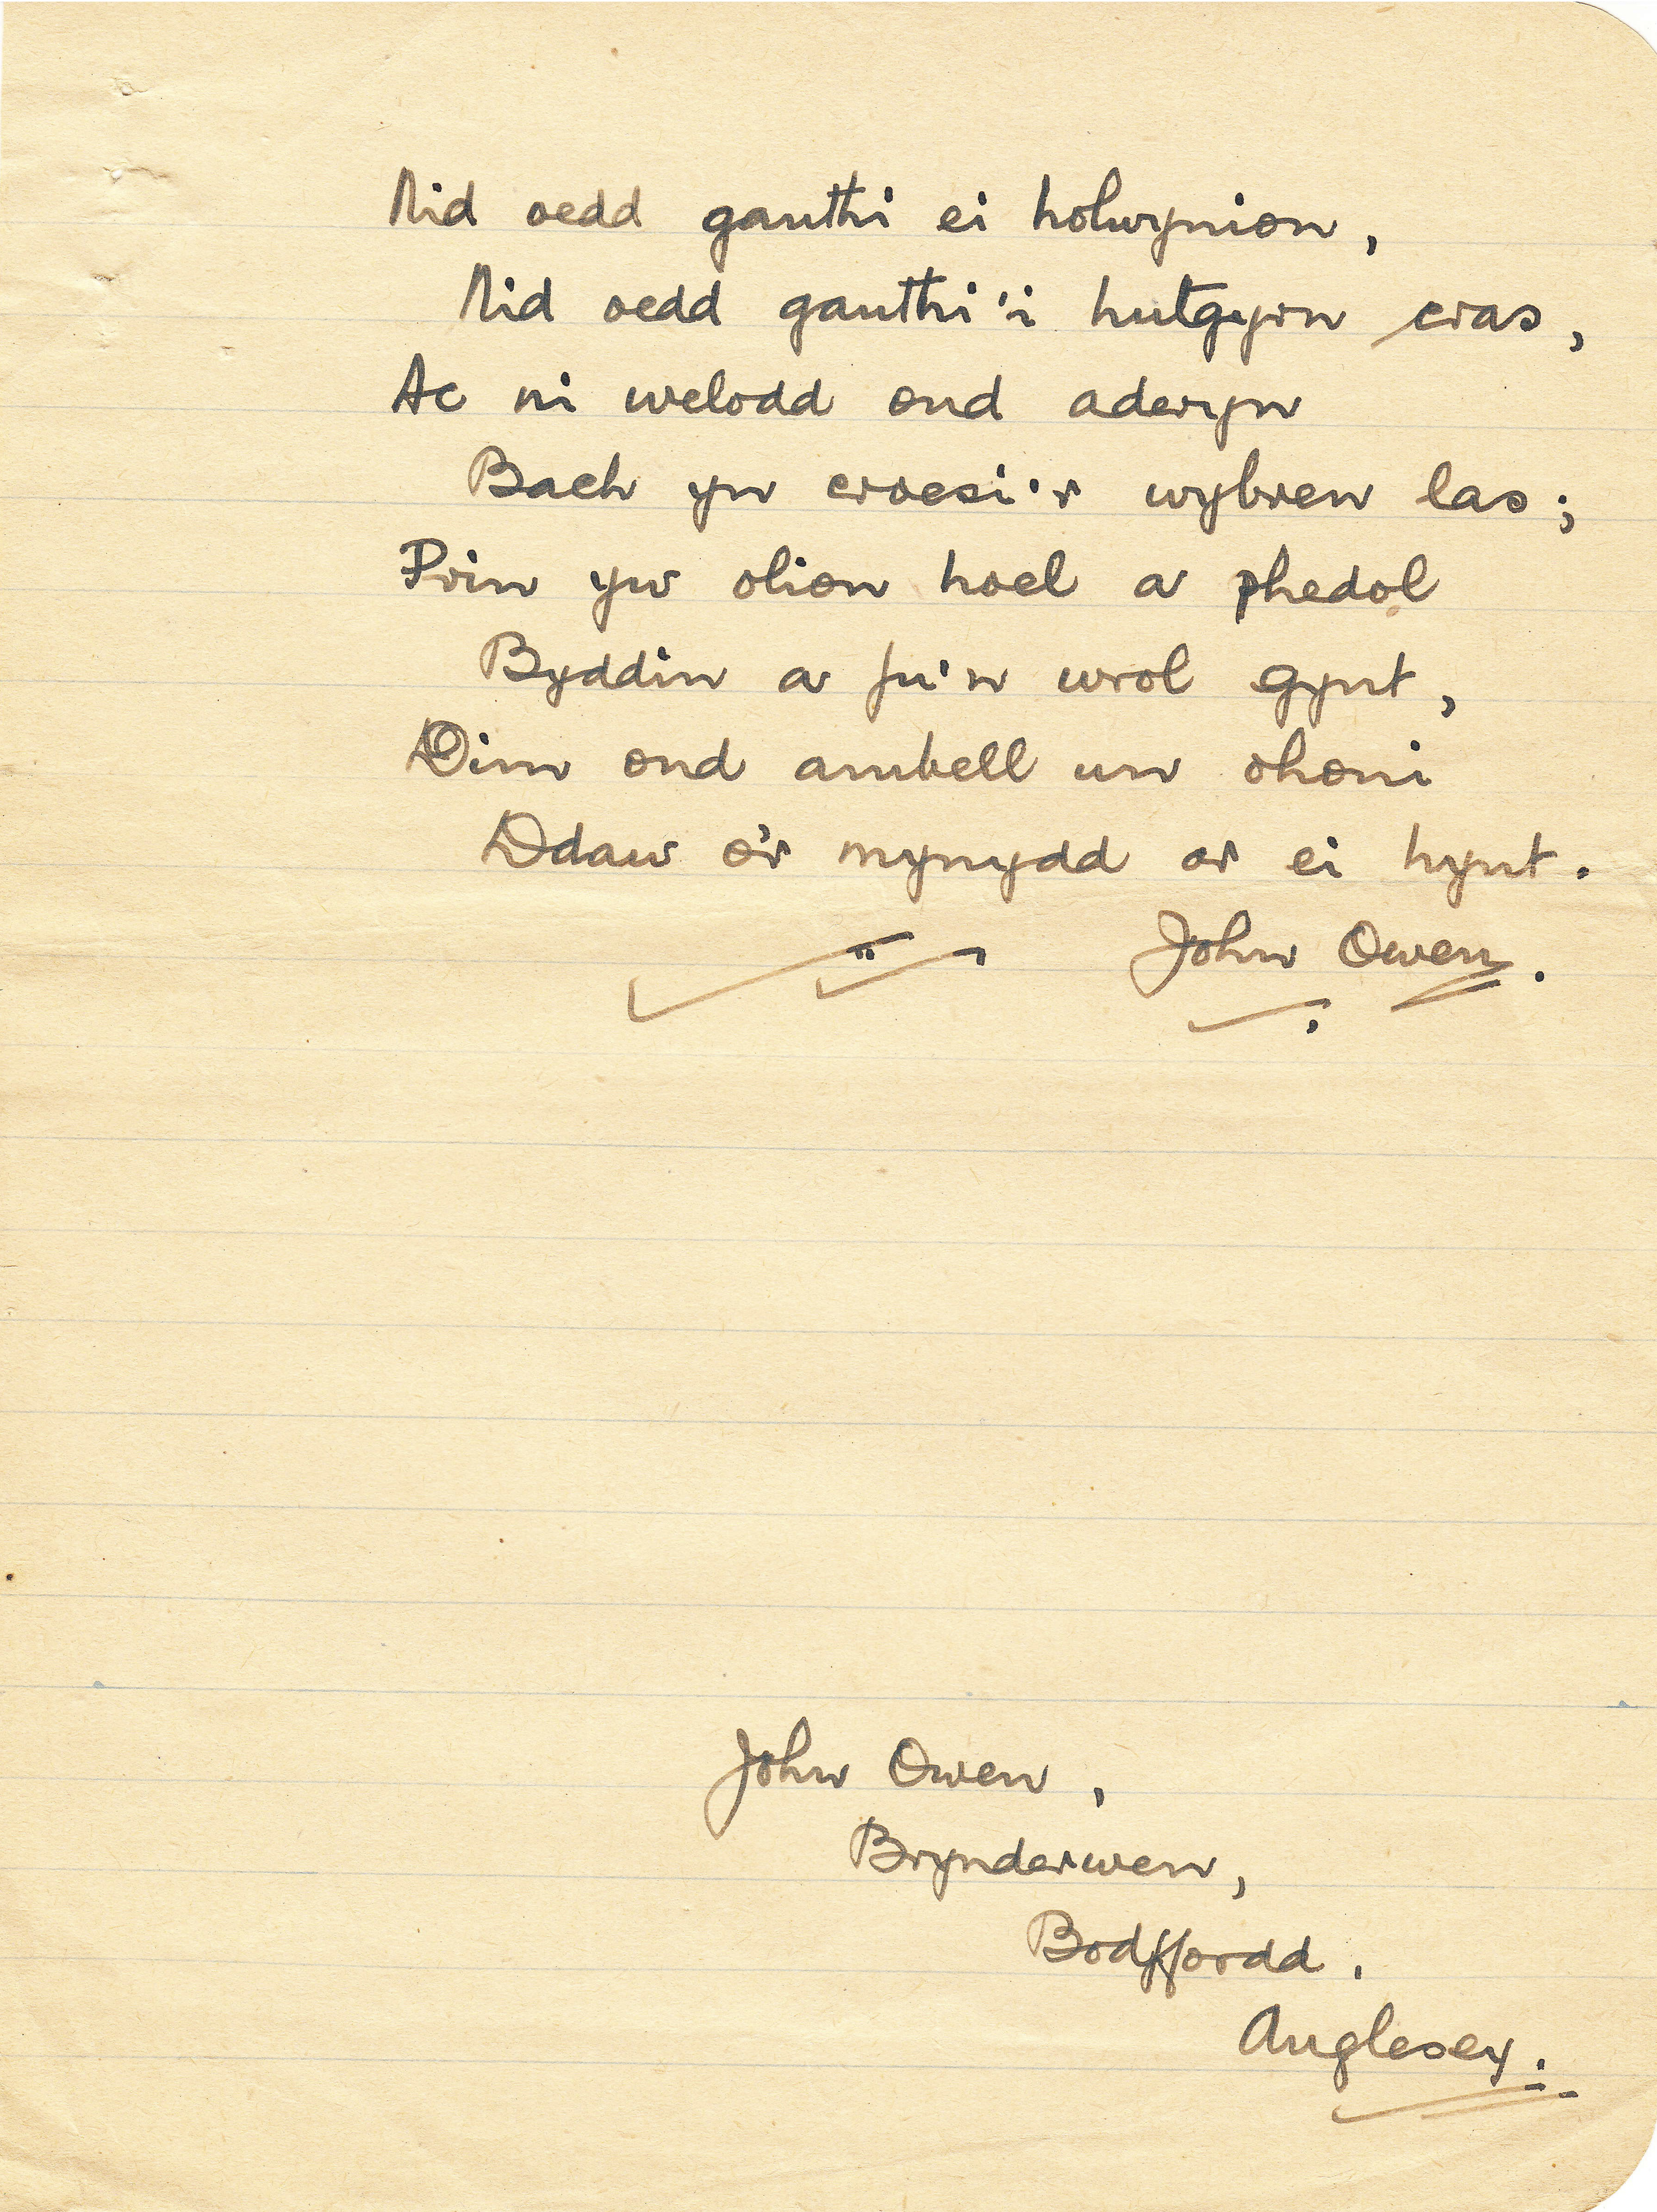 Nid oedd ganthi ei holwynion,
Nid oedd ganthi'i hutgyrn cras,
Ac ni welodd ond aderyn
Bach yn croesi'r wybren las;
Prin yw olion hoel a phedol
Byddin a fu'n wrol gynt,
Dim ond ambell un ohoni
Ddaw o'r mynydd ar ei hynt.
John Owen.
John Owen,
Brynderwen,
Bodffordd.
Anglesey.